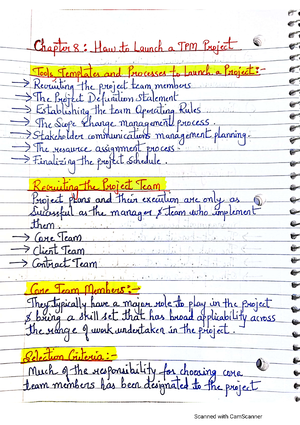 Chapter 8: How to Launch a TPM Project
Tools, Templates and Processes to Launch a Project:-
→ Recruiting the project team members
→ The Project Definition Statement
→ Establishing the team Operating Rules
→ The Scope Change management process.
→ Stakeholder communications management planning.
→ The resource assignment process.
→ Finalizing the project schedule.
Recruiting the Project Team
Project plans and their execution are only as
successful as the manager & team who implement
them.
→ Core Team
→ Client Team
→ Contract Team
Core Team Members:-
They typically have a major role to play in the project
& bring a skill set that has broad applicability across
the range of work undertaken in the project.
Selection Criteria:-
Much of the responsibility for choosing core
team members has been designated to the project
Scanned with CamScanner